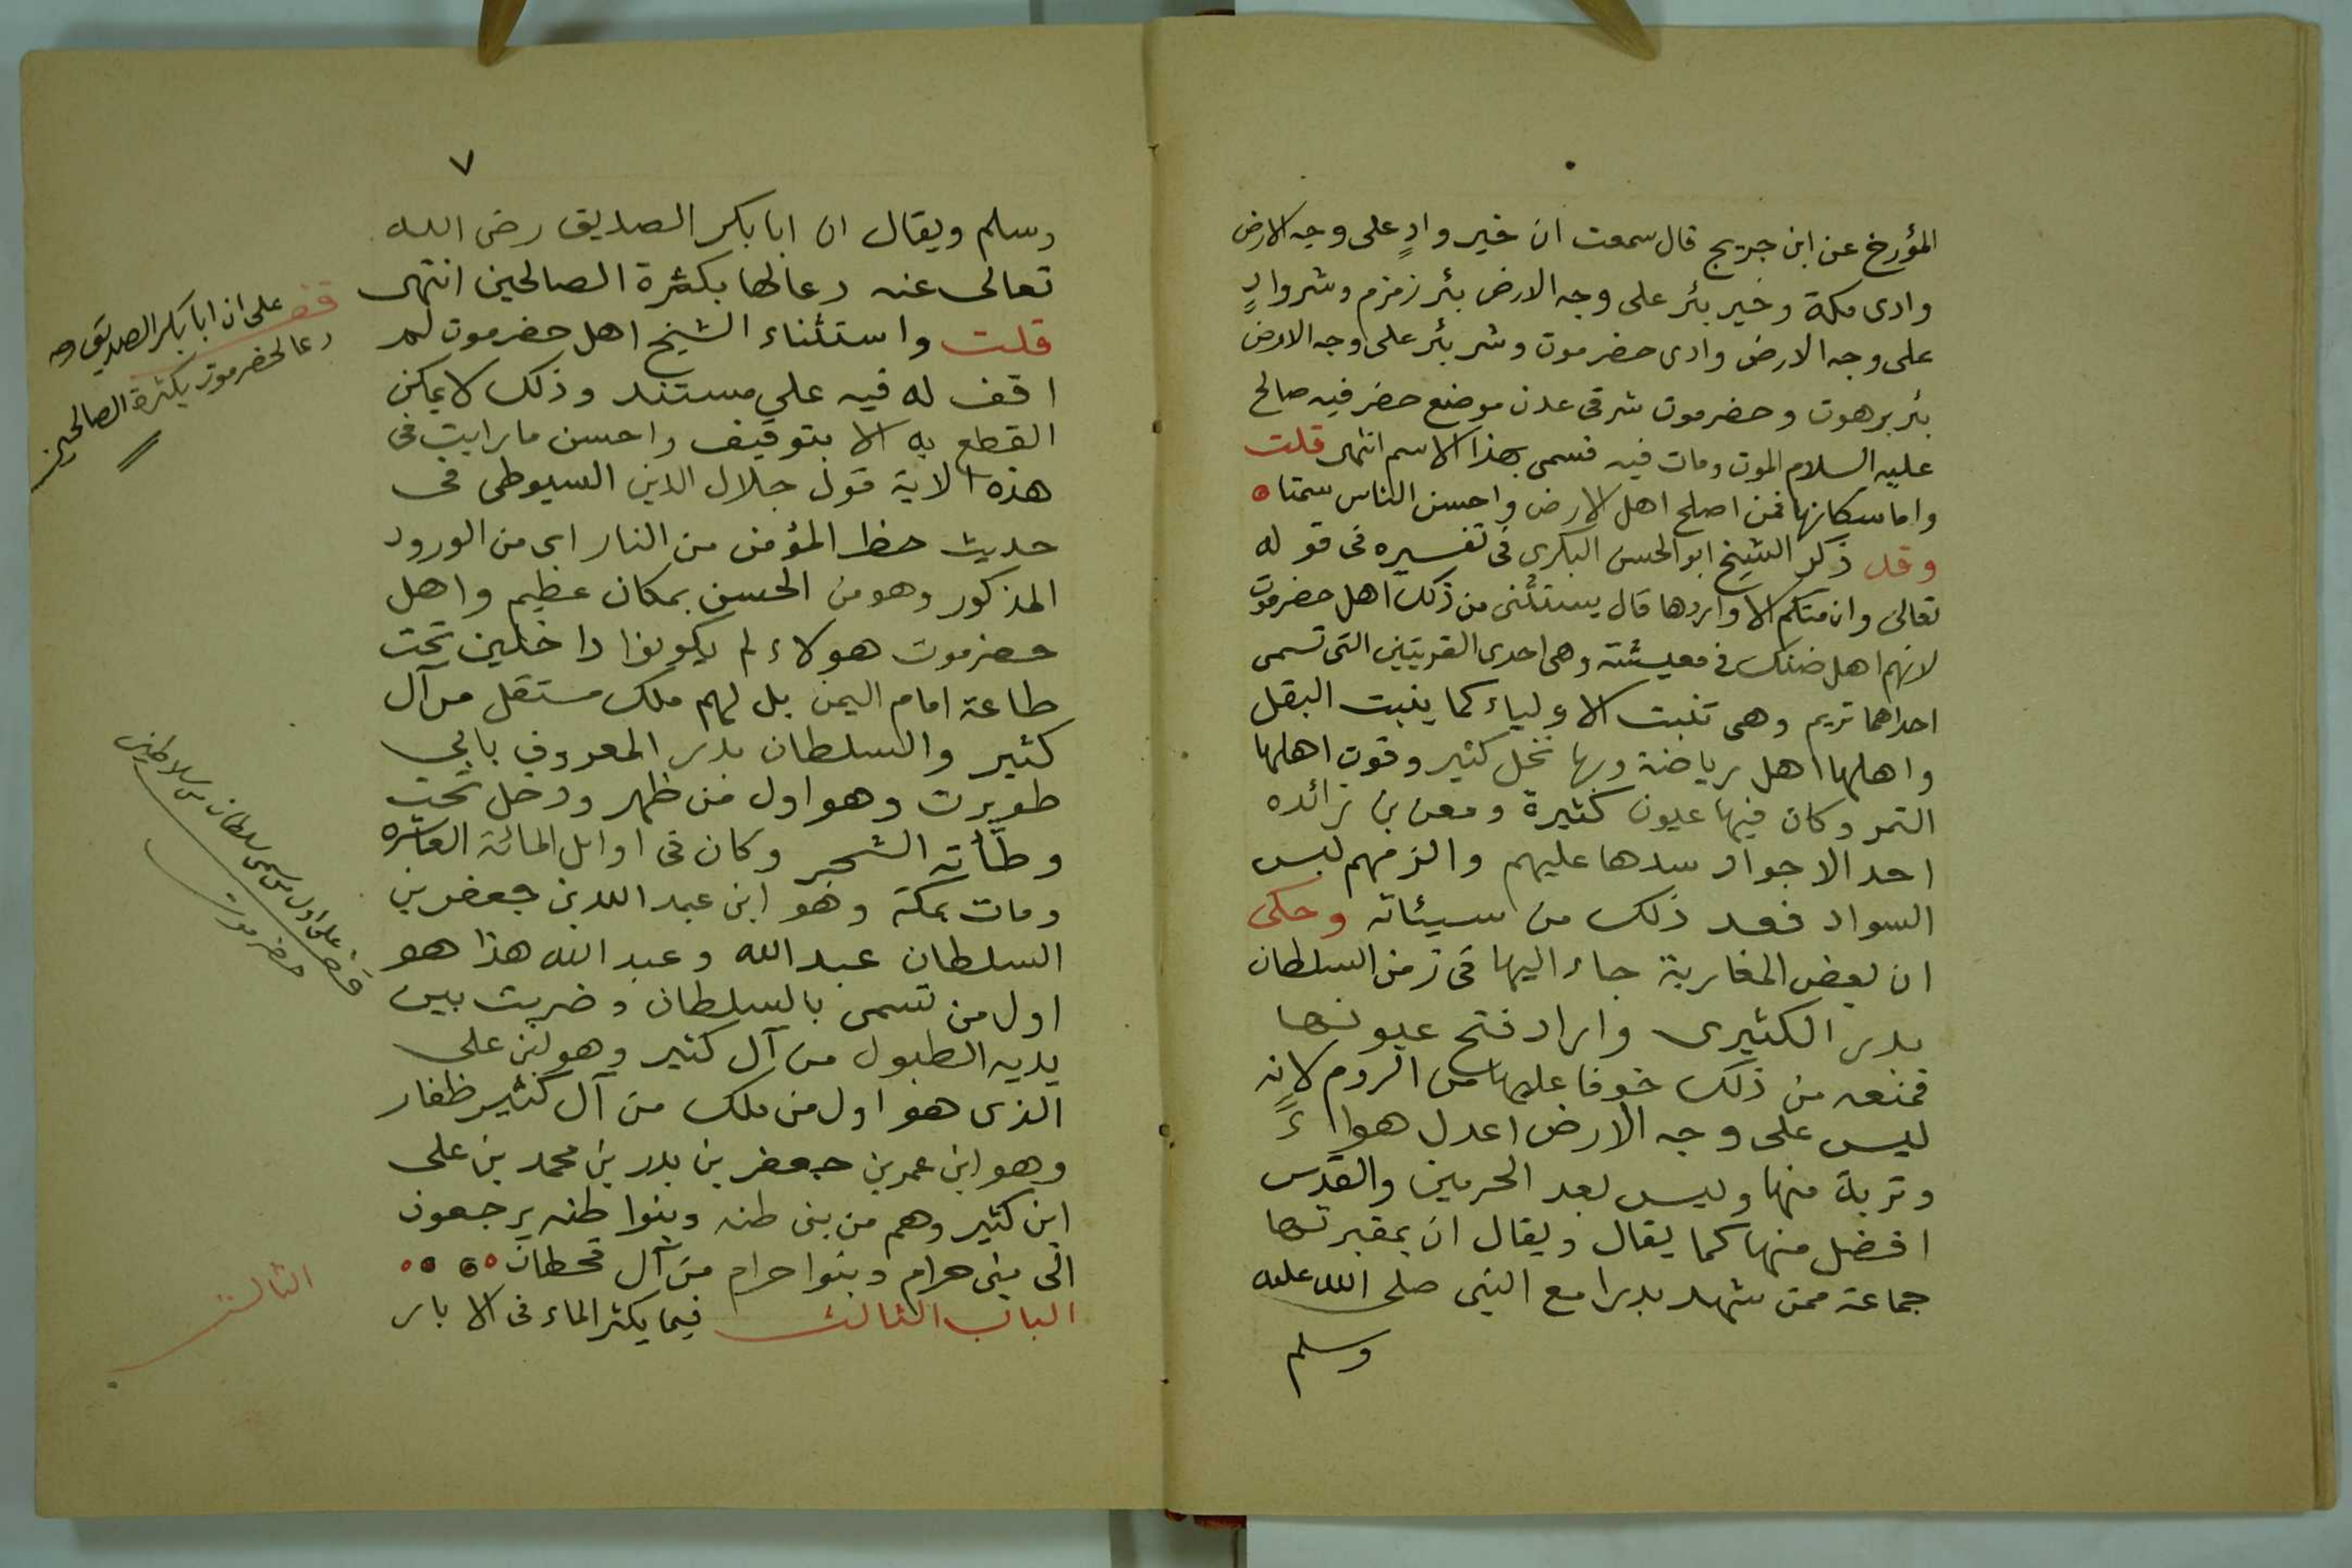 المؤرخ عن ابن جريج قال سمعت ان خير وادٍ على وجه الارض
وادى مكة وخير بئر على وجه الارض بئر زمزم وشر وادٍ
على وجه الارض وادى حضرموت وشر بئر على وجه الارض
بئر برهوت وحضرموت شرقى عدن موضع حضر فيه صالح
عليه السلام الموت ومات فيه فسمى بهذا الاسم انتهى قلت
واما سكانها فمن اصلح اهل الارض واحسن الناس سمتا
وقد ذكر الشيخ ابو الحسن البكرى فى تفسيره فى قوله
تعالى وان منكم الا واردها قال يستثنى من ذلك اهل حضرموت
لانهم اهل ضنك فى معيشته وهى احدى القريتين التى تسمى
احداهما تريم وهى تنبت الاولياء كما ينبت البقل
واهلها اهل رياضة وبها نخل كثير وقوت اهلها
التمر وكان فيها عيون كثيرة ومعن بن زائده
احد الاجواد سدها عليهم والزمهم لبس
السواد فعد ذلك من سيئاته وحكى
ان بعض المغاربة جاء اليها فى زمن السلطان
بدر الكثيرى واراد فتح عيونها
فمنعه من ذلك خوفا عليها من الروم لانه
ليس على وجه الارض اعدل هواءً
وتربة منها وليس بعد الحرمين والقدس
افضل منها كما يقال ويقال ان بمقبرتها
جماعة ممن شهد بدرا مع النبى صلى الله عليه
وسلم
٧
وسلم ويقال ان ابا بكر الصديق رضى الله
تعالى عنه دعا لها بكثرة الصالحين انتهى
قلت واستثناء الشيخ اهل حضرموت لم
اقف له فيه على مستند وذلك لا يمكن
القطع به الا بتوقيف واحسن ما رايت فى
هذه الاية قول جلال الدين السيوطى فى
حديث حظ المؤمن من النار اى من الورود
المذكور وهو من الحسن بمكان عظيم واهل
حضرموت هولاء لم يكونوا داخلين تحت
طاعة امام اليمن بل لهم ملك مستقل من آل
كثير والسلطان بدر المعروف بابى
طويرت وهو اول من ظهر ودخل تحت
وطأته الشحر وكان فى اوايل المائة العاشره
ومات بمكة وهو ابن عبد الله بن جعفر بن
السلطان عبد الله وعبد الله هذا هو
اول من تسمى بالسلطان وضربت بين
يديه الطبول من آل كثير وهو ابن على
الذى هو اول من ملك من آل كثير ظفار
وهو ابن عمر بن جعفر بن بدر بن محمد بن على
ابن كثير وهم من بنى طنه وبنوا طنه يرجعون
الى بنى حرام وبنوا حرام من آل قحطان
الباب الثالث فيما يكثر الماء فى الابار
قف على ان ابا بكر الصديق
دعا لحضرموت بكثرة الصالحين
قف على اول من تسمى سلطان من سلاطين
حضرموت
الثالث